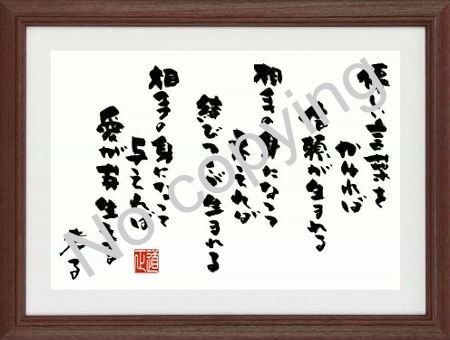 優しい言葉を
かければ
信頼が生まれる
相手の身になって
考えれば
結びつきが生まれる
相手の身になって
与えれば
愛が芽生える
No copying